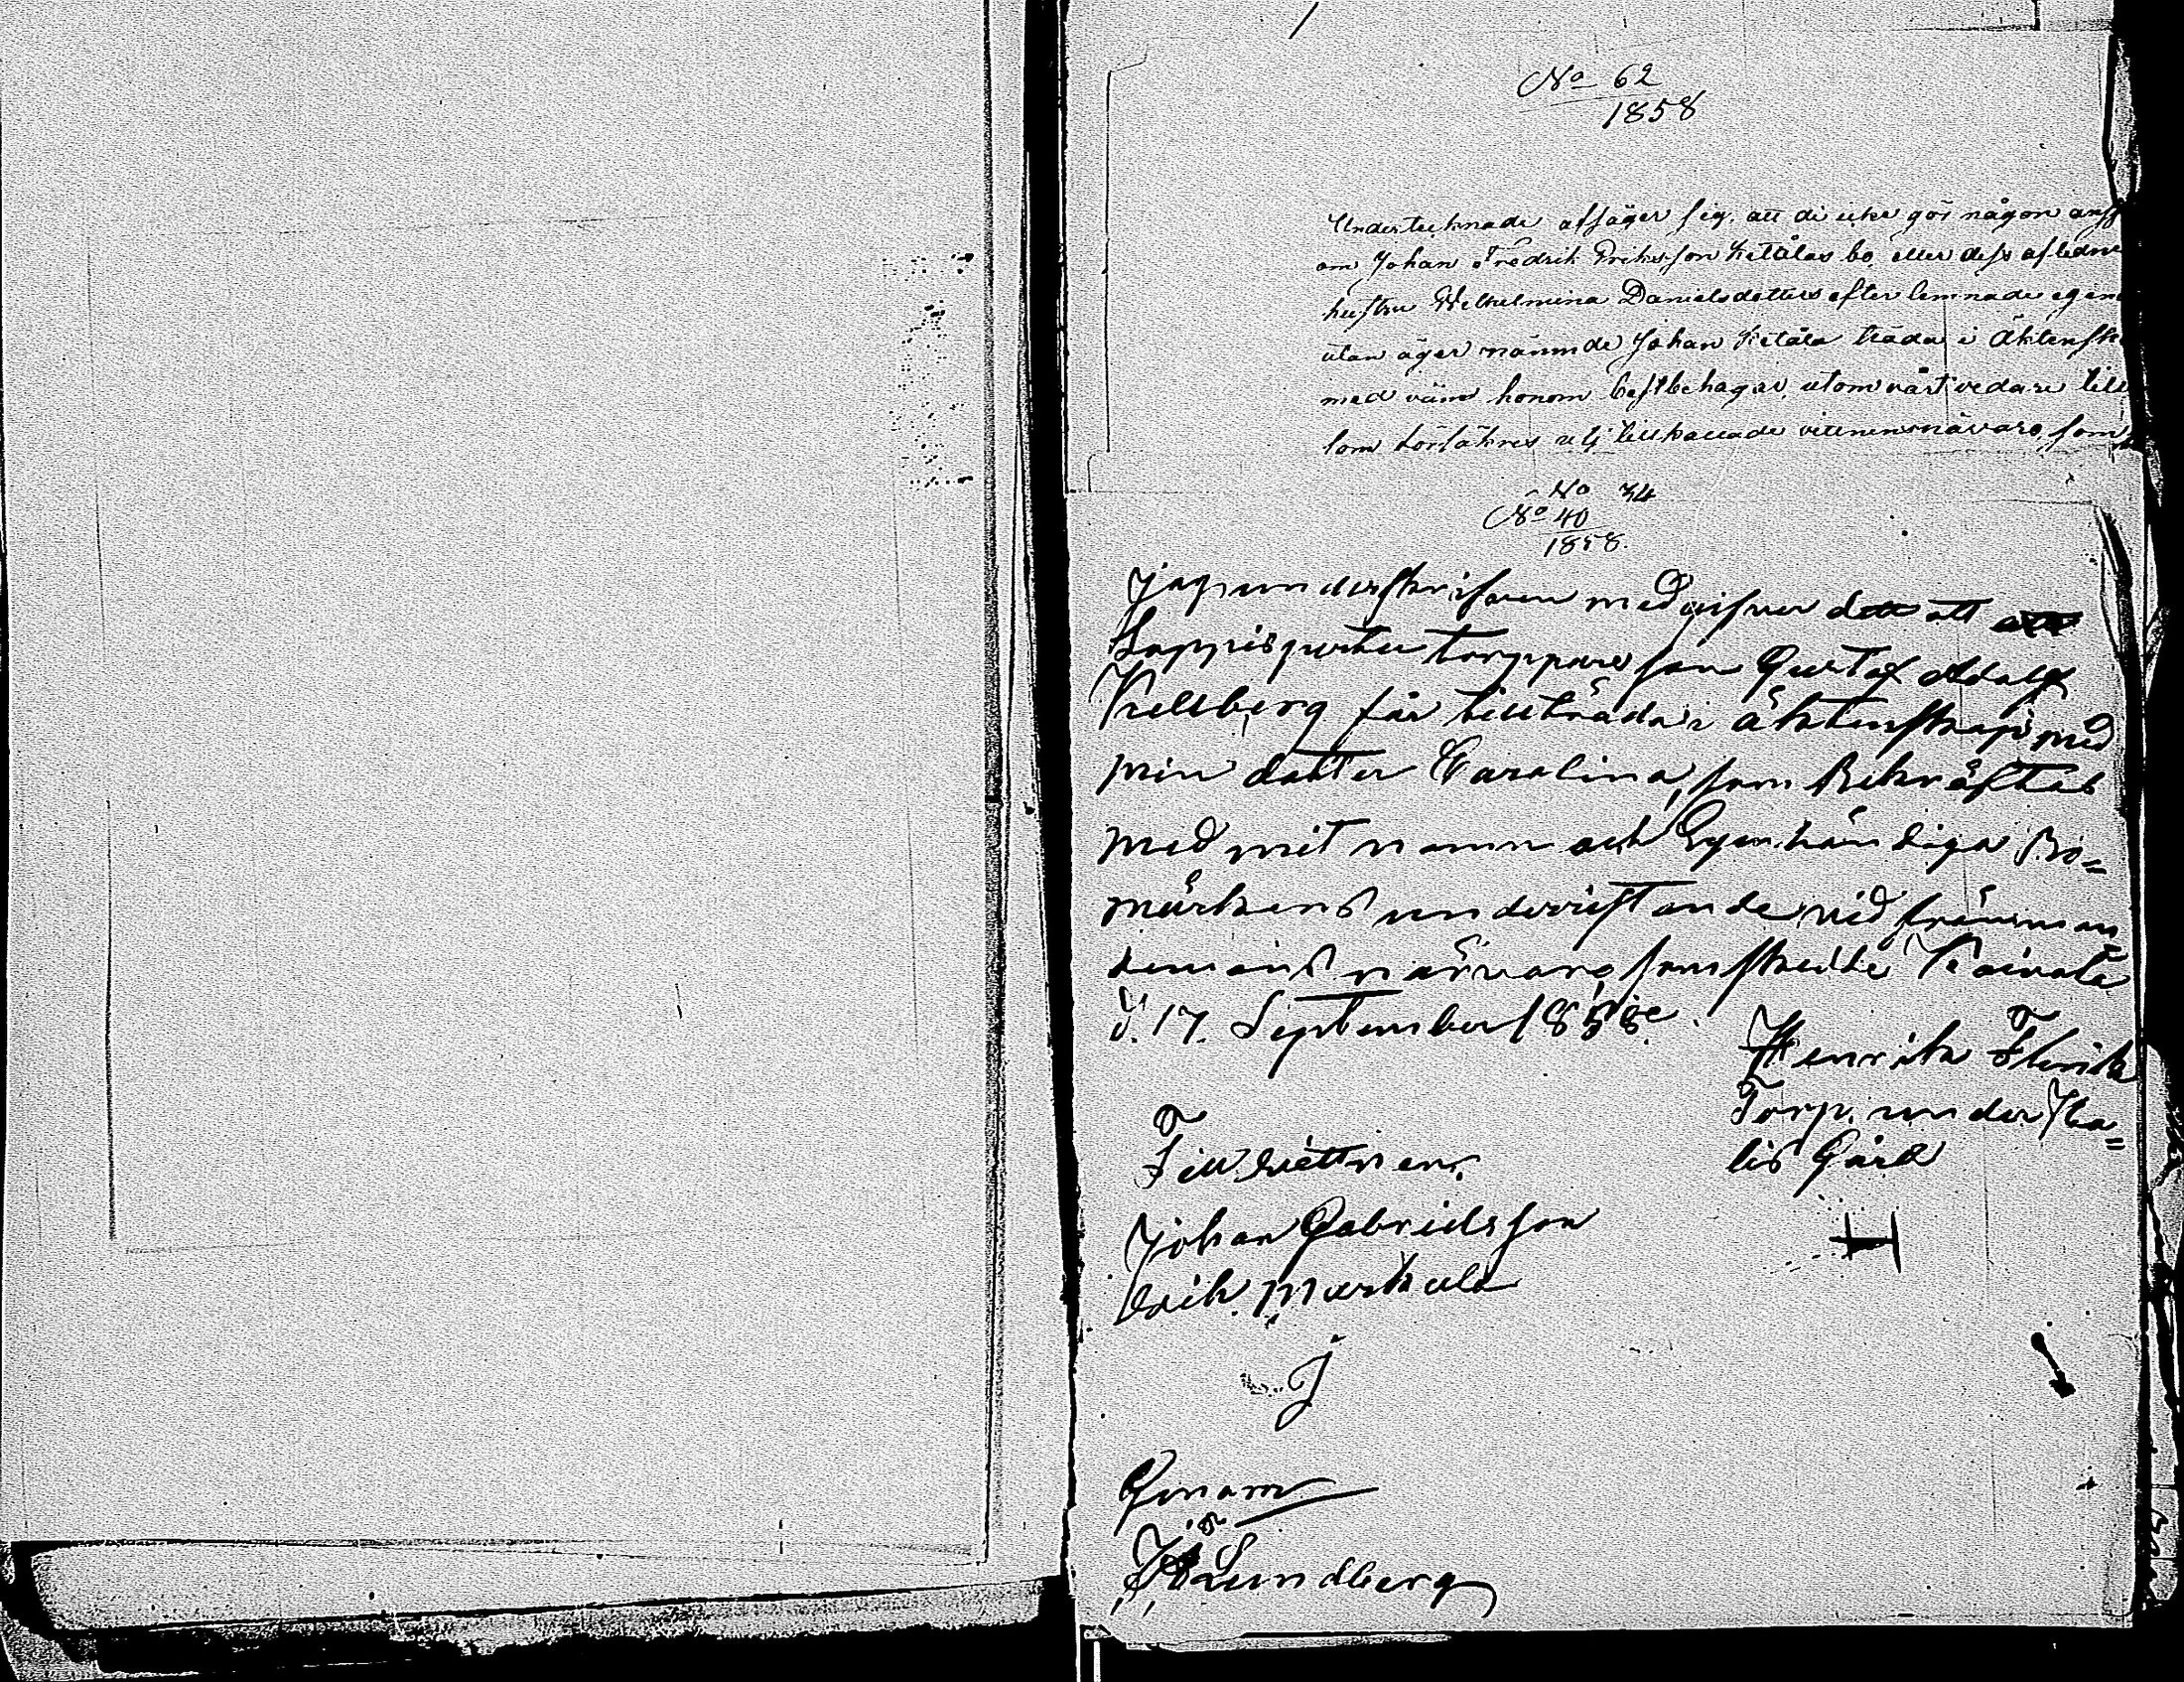 No 62
1858
Undertecknade afsäger sig, att di icke gör någon
om Johan Fredrik Eriksson Ketälas bo eller dess afledne
hustru Wilhelmina Danielsdotters efter lemnade
utan äger nämnde Johan Ketäla träda i Äktensk
med väm honom bäst behagar, utom vårt vedare
som försäkres uti tillkallade vittnens närvaro, som
No 34
No 40
1858.
Jag underskrifven medgifver det att
Lappis torppare son Gustaf Adolf
Kellberg får tillträda i äktenskap med
min dotter Carolina, som Bekräftas
med mit namn och Egenhändiga Bo=
märkens underristande vid främman
demans närvaro som skedde Koivula
d. 17. September 1858.
Henrik Flink
Torp. under Ha=
lis Gård
Till Vettnen.
Johan Gabrielsson
Erik Markula
J
Genom
Lundberg